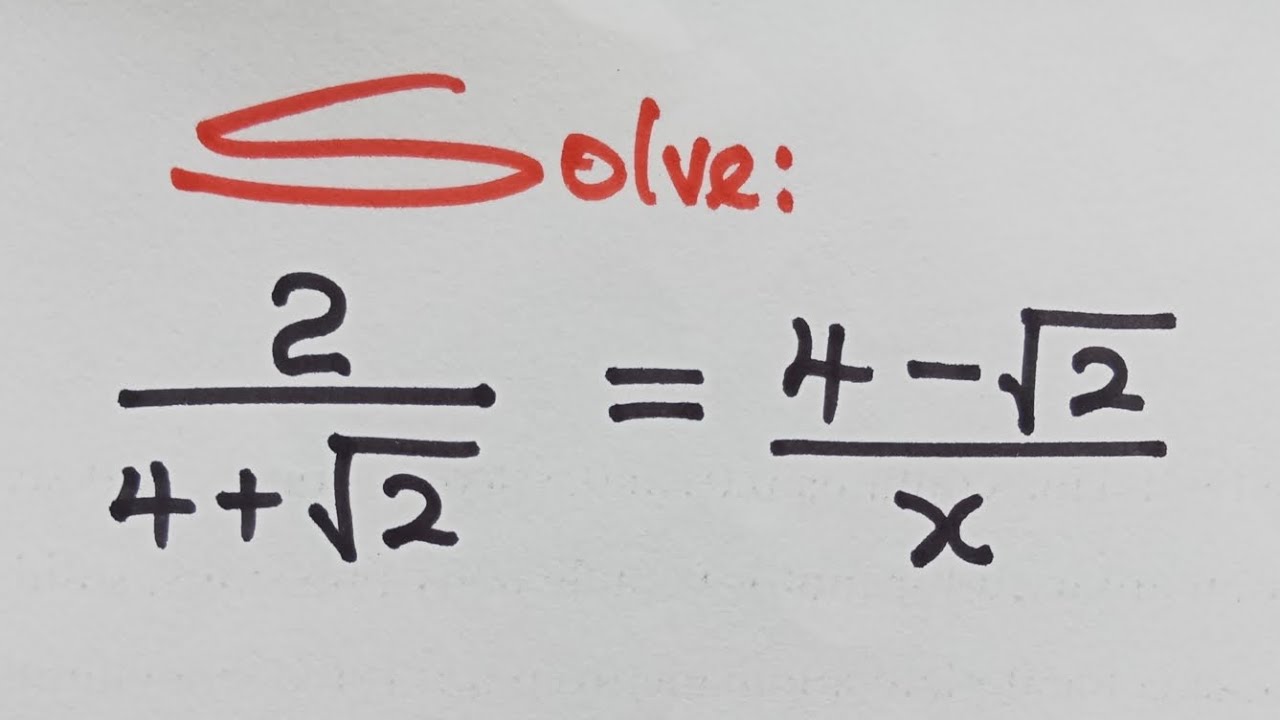 Solve:
2/(4+√2) = (4-√2)/x